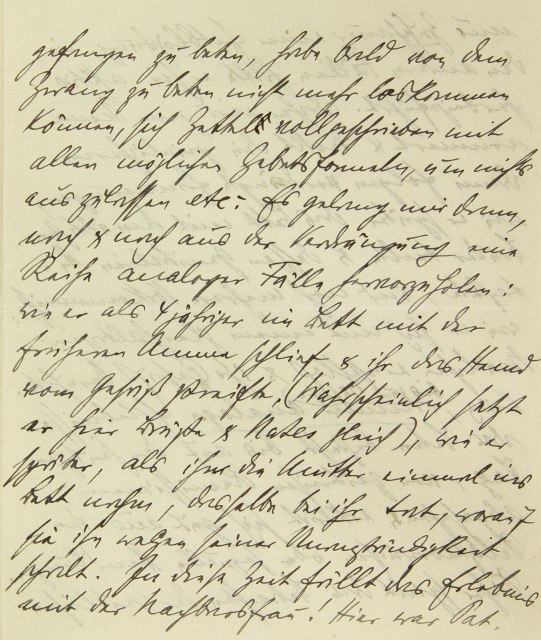 gefangen zu beten, habe bald von dem
Zwang zu beten nicht mehr loskommen
können, sich Zettel vollgeschrieben mit
allen möglichen Gebetsformeln, um nichts
auszulassen etc: Es gelang mir dann,
nach & nach aus der Verdrängung eine
Reihe analoger Fälle hervorzuholen:
wie er als 4jähriger im Bett mit der
früheren Amme schlief & ihr das Hemd
vom Gesäß streifte, (Wahrscheinlich setzt
er hier Brüste & Nates gleich), wie er
später, als ihn die Mutter einmal ins
Bett nahm, dasselbe bei ihr tat, worauf
sie ihn wegen seiner Unanständigkeit
schalt. In diese Zeit fällt das Erlebnis
mit der Nachbarsfrau! Hier war Pat.